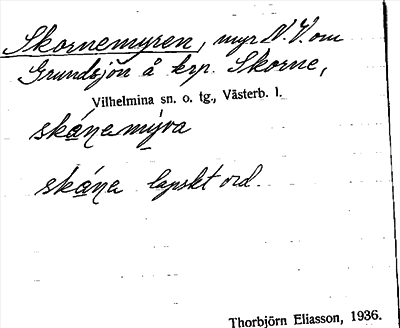 Skornemyren, myr N.V. om
Grundsjön å krp. Skorne,
Vilhelmina sn. o. tg., Västerb. l.
skáņemýra
skáņe lapskt ord.
Thorbjörn Eliasson, 1936.